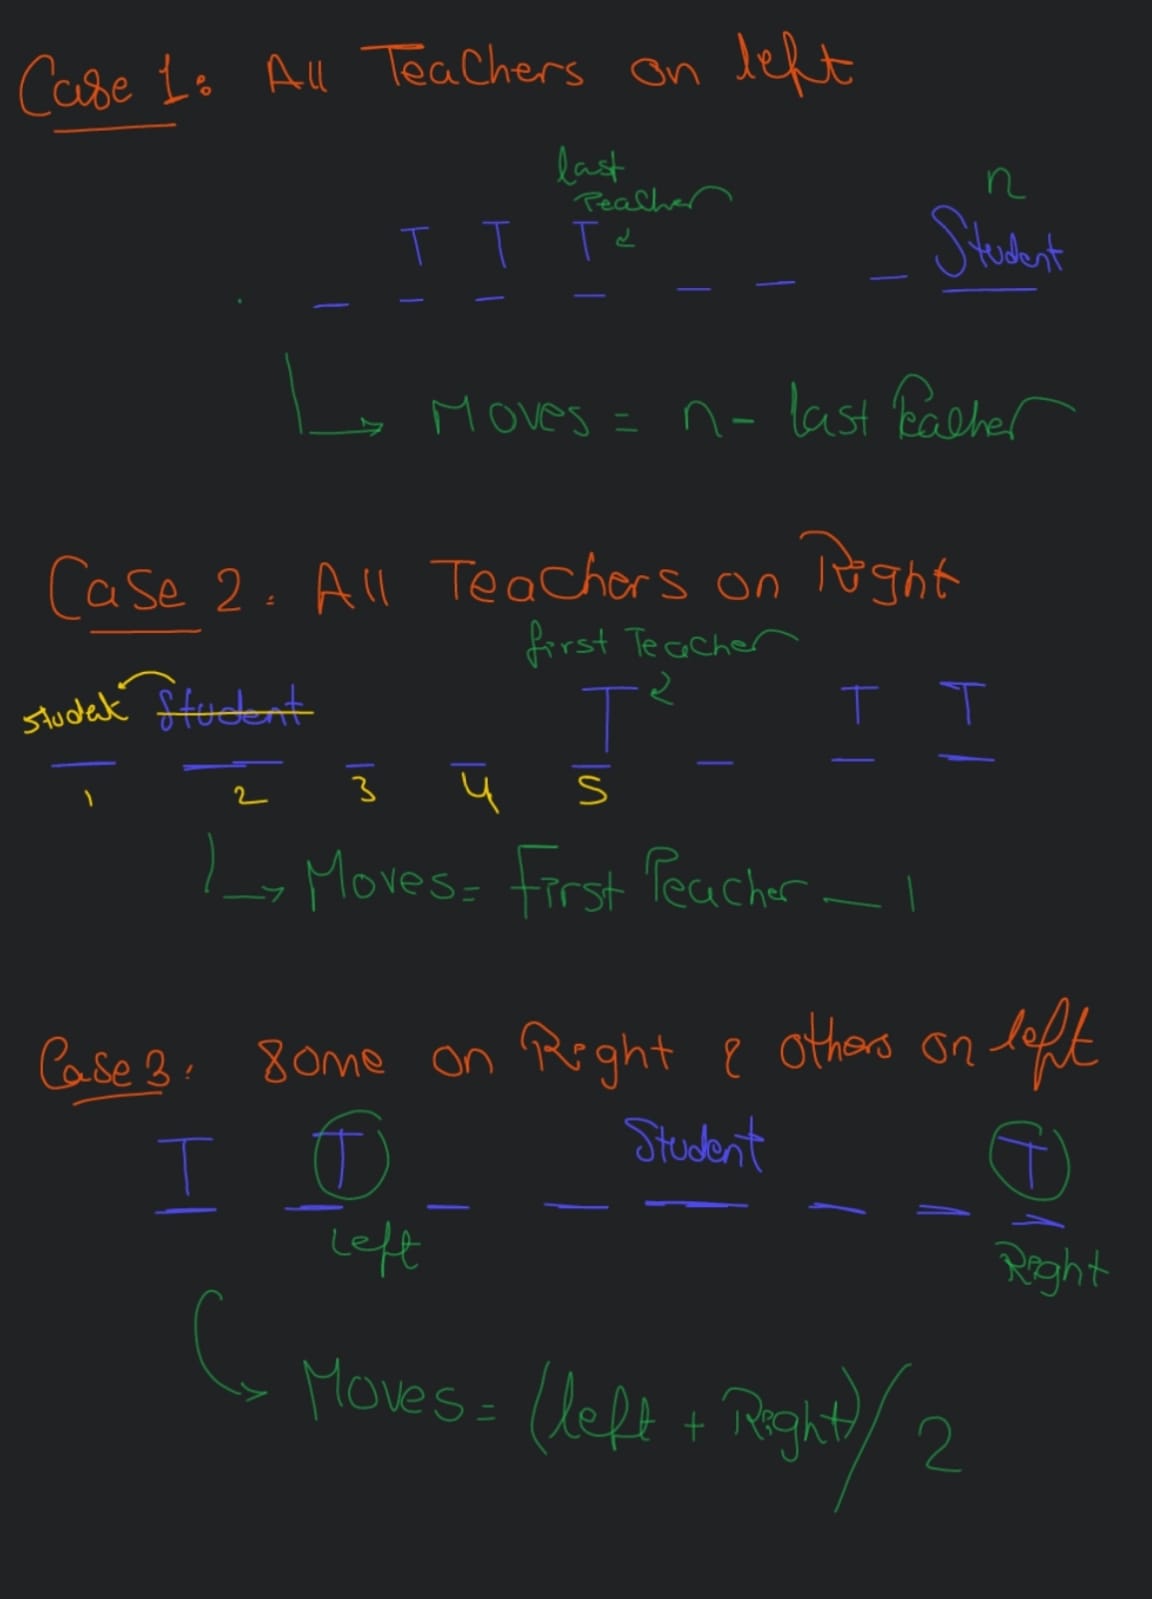 Case 1: All Teachers on left
last
Teacher
n
T T T Student
Moves = n - last Teacher
Case 2: All Teachers on Right
first Teacher
Student T T T
1 2 3 4 5
Moves = First Teacher - 1
Case 3: Some on Right & others on left
T T Student T
Left Right
Moves = (left + Right)/2